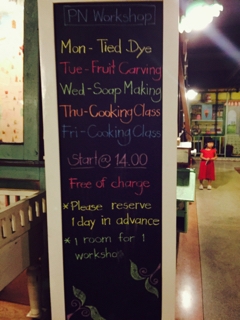 PN Workshop
Mon - Tied Dye
Tue - Fruit Carving
Wed - Soap Making
Thu - Cooking Class
Fri - Cooking Class
Start@ 14.00
Free of charge
* Please reserve
1 day in advance
* 1 room for 1
workshop